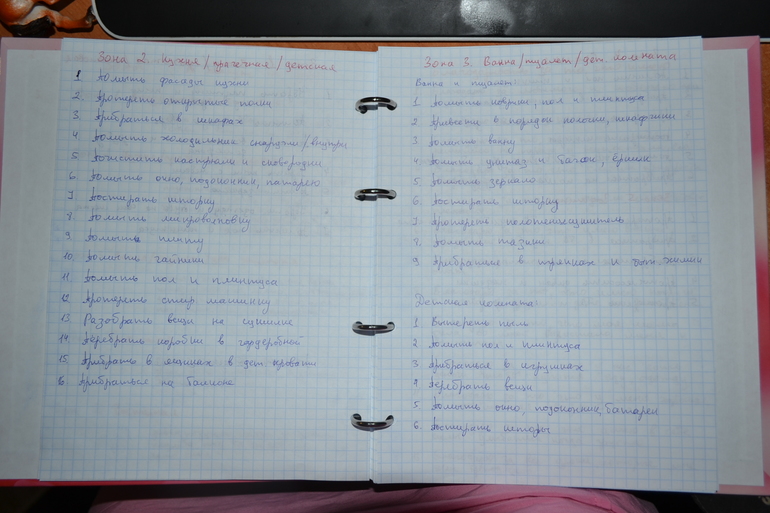 Зона 2. кухня/прачечная/детская
1 Помыть фасады кухни
2. Протереть открытые полки
3. Прибраться в шкафах
4 Помыть холодильник снаружи/внутри
5. Почистить кастрюли и сковородки
6. Помыть окно, подоконник, батарею
7. Постирать шторку
8. Помыть микроволновку
9. Помыть плиту
10. Помыть чайники
11. Помыть пол и плинтуса
12. Протереть стир. машинку
13. Разобрать вещи на сушилке
14. Перебрать коробки в гардеробной
15. Прибрать в ящиках в дет. кровати
16. Прибраться на балконе
Зона 3. Ванна/туалет/дет. комната
Ванна и туалет:
1 Помыть коврики, пол и плинтуса
2 Привести в порядок полочки, шкафчики
3 Помыть ванну
4 Помыть унитаз и бачок, ёршик
5 Помыть зеркало
6. Постирать шторку
7 Протереть полотенцесушитель
8. Помыть тазики
9. Прибраться в тряпках и быт. химии
Детская комната:
1 Вытереть пыль
2 Помыть пол и плинтуса
3 Прибраться в игрушках
4 Перебрать вещи
5. Помыть окно, подоконник, батареи
6. Постирать шторы